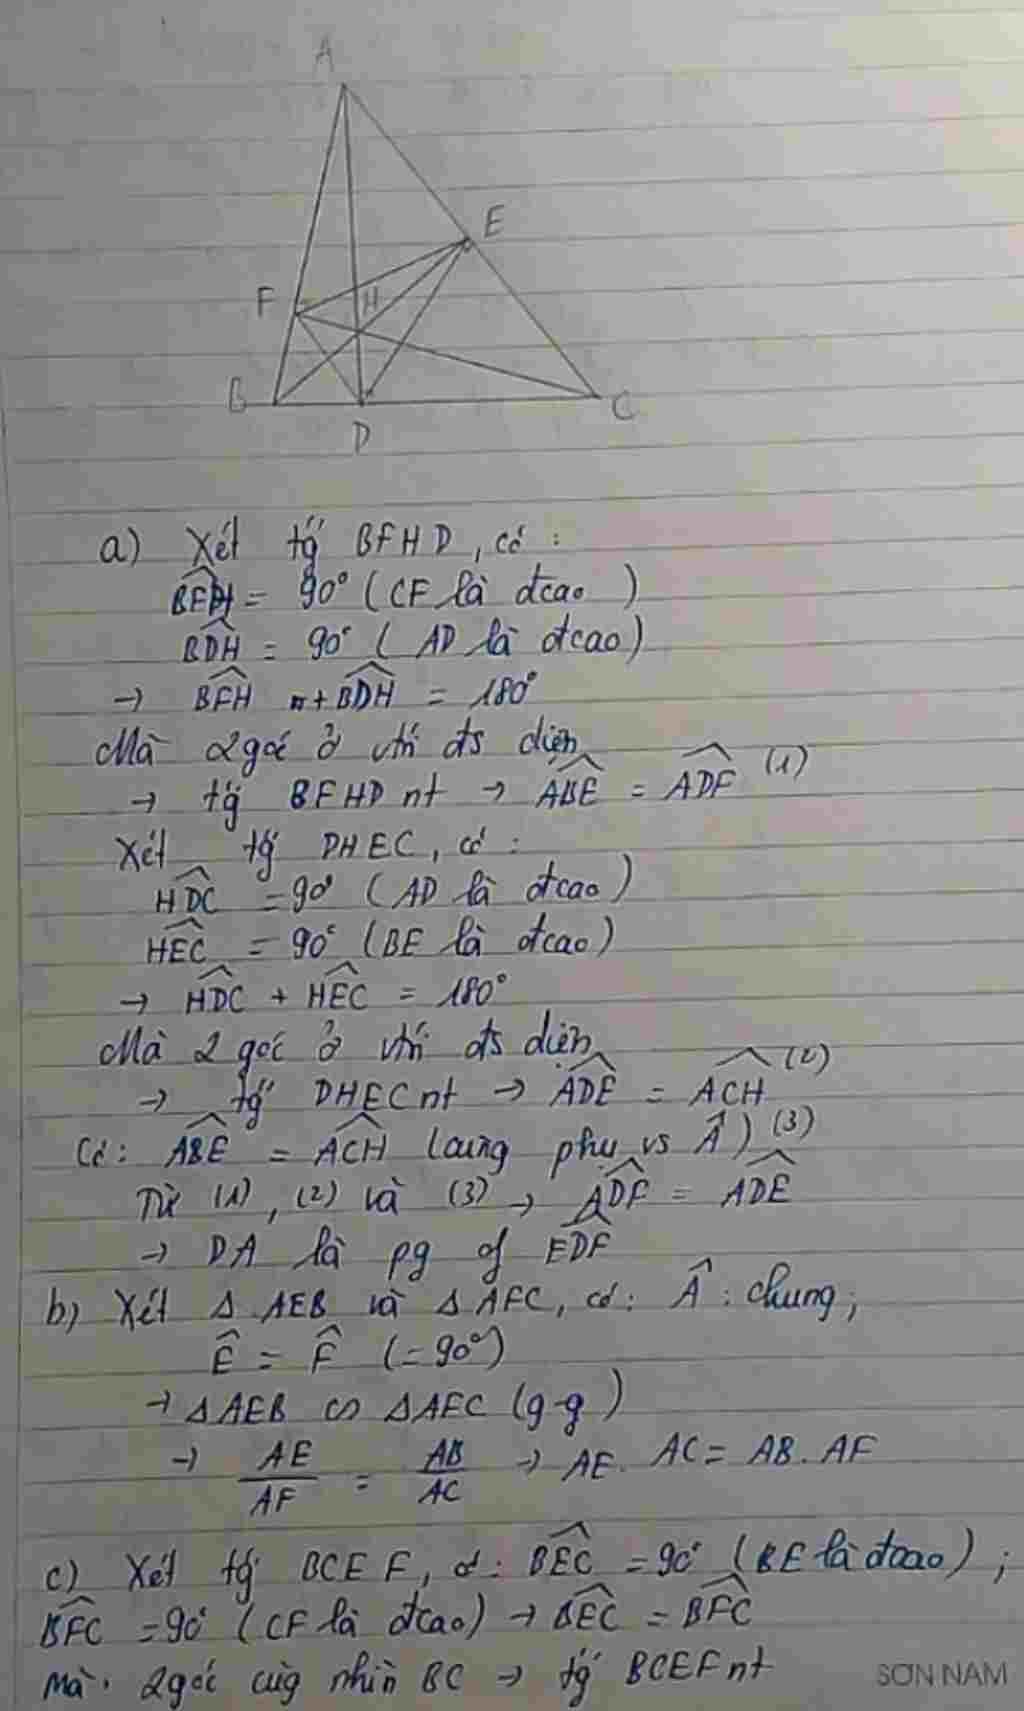 A
E
F
H
B
C
D
a) Xét tg BFHD, có :
BFH = 90° (CF là đcao)
BDH = 90° ( AD là đcao)
→ BFH + BDH = 180°
Mà 2 góc ở vtrí đs diện
→ tg BFHD nt → ABE = ADF (1)
Xét tg DHEC, có :
HDC = 90° (AD là đcao)
HEC = 90° (BE là đcao)
→ HDC + HEC = 180°
Mà 2 góc ở vtrí đs diện
→ tg DHEC nt → ADE = ACH (2)
Có: ABE = ACH (cùng phụ vs Â) (3)
Từ (1), (2) và (3) → ADF = ADE
→ DA là pg of EDF
b) Xét Δ AEB và Δ AFC, có: Â : chung;
Ê = F̂ (= 90°)
→ Δ AEB ∽ Δ AFC (g-g)
→ AE/AF = AB/AC → AE. AC = AB. AF
c) Xét tg BCEF, có: BEC = 90° (BE là đcao) ;
BFC = 90° (CF là đcao) → BEC = BFC
Mà 2 góc cùg nhìn BC → tg BCEF nt
SƠN NAM